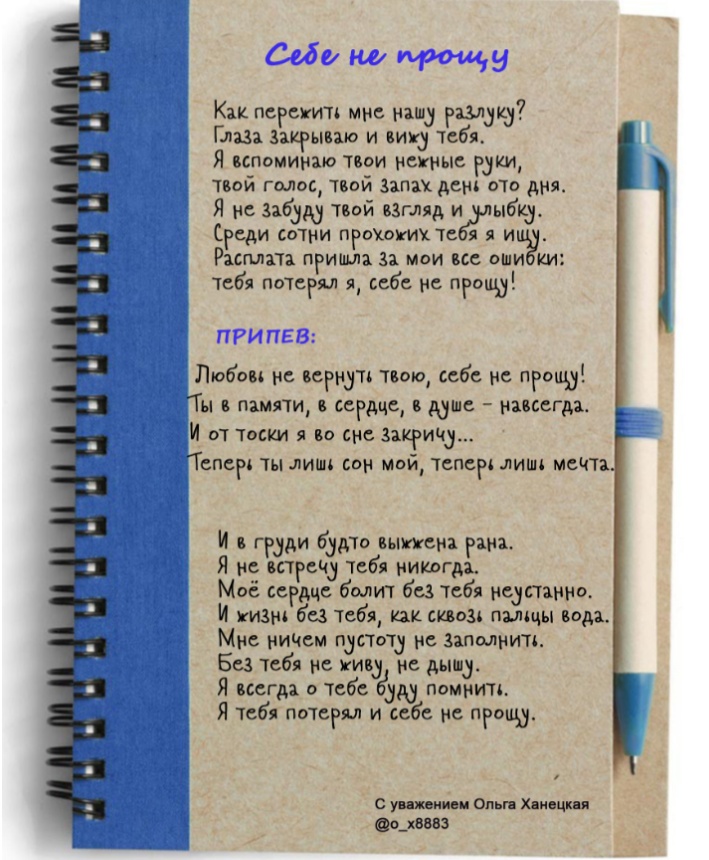 Себе не прощу
Как пережить мне нашу разлуку?
Глаза закрываю и вижу тебя.
Я вспоминаю твои нежные руки,
твой голос, твой запах день ото дня.
Я не забуду твой взгляд и улыбку.
Среди сотни прохожих тебя я ищу.
Расплата пришла за мои все ошибки:
тебя потерял я, себе не прощу!
ПРИПЕВ:
Любовь не вернуть твою, себе не прощу!
Ты в памяти, в сердце, в душе - навсегда.
И от тоски я во сне закричу...
Теперь ты лишь сон мой, теперь лишь мечта.
И в груди будто выжжена рана.
Я не встречу тебя никогда.
Моё сердце болит без тебя неустанно.
И жизнь без тебя, как сквозь пальцы вода.
Мне ничем пустоту не заполнить.
Без тебя не живу, не дышу.
Я всегда о тебе буду помнить.
Я тебя потерял и себе не прощу.
С уважением Ольга Ханецкая
@o_x8883